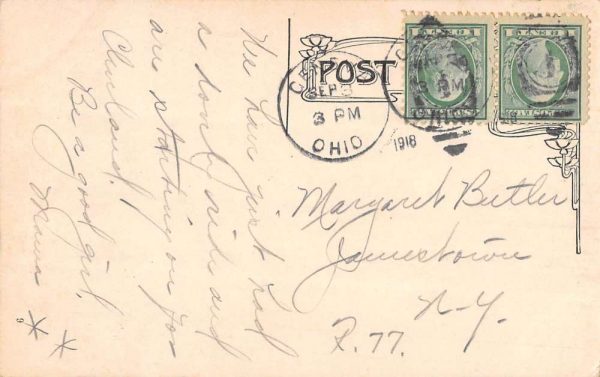 We have just had
a donky ride and
are starting on for
Cleveland.
Be a good girl.
Mama
POST
SEP 3
3 PM
OHIO
1918
Margaret Butler
Jamestown
N-Y.
R. 77.